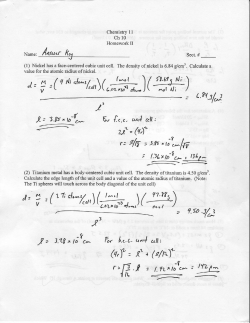 Chemistry 11
Ch 10
Homework II
Name: Answer Key Sect. #
(1) Nickel has a face-centered cubic unit cell. The density of nickel is 6.84 g/cm³. Calculate a
value for the atomic radius of nickel.
d = M/V = (4 Ni atoms/cell) (1 mol / 6.02×10²³ atoms) (58.69 g Ni / mol Ni) / l³ = 6.84 g/cm³
l = 3.85×10⁻⁸ cm For f.c.c. unit cell:
2l² = (4r)²
r = l/√8 = 3.85×10⁻⁸ cm/√8
= 1.36×10⁻⁸ cm = 136 pm
(2) Titanium metal has a body-centered cubic unit cell. The density of titanium is 4.50 g/cm³.
Calculate the edge length of the unit cell and a value of the atomic radius of titanium. (Note:
The Ti spheres will touch across the body diagonal of the unit cell)
d = M/V = (2 Ti atoms/cell) (1 mol / 6.02×10²³ atoms) (47.88 g / mol) / l³ = 4.50 g/cm³
l = 3.28×10⁻⁸ cm For b.c.c. unit cell:
(4r)² = l² + (l√2)²
r = l = 1.42×10⁻⁸ cm = 142 pm